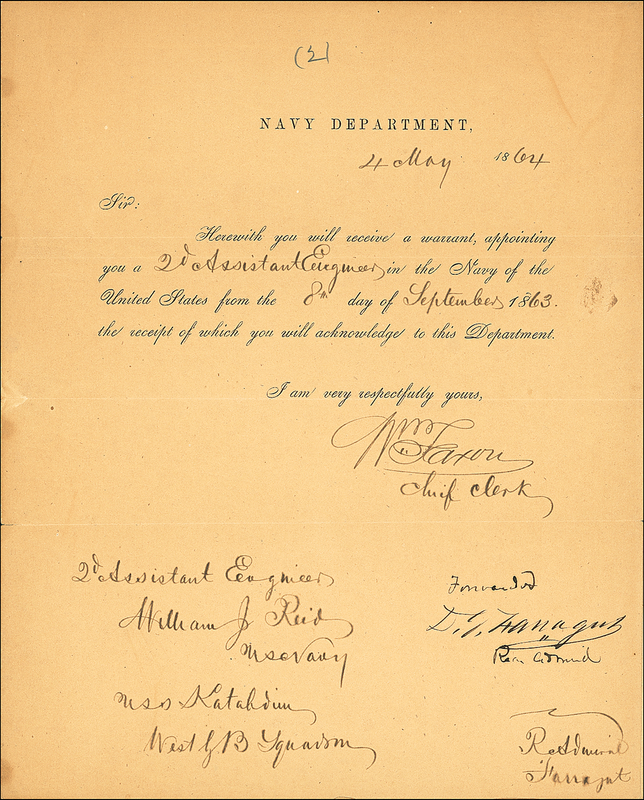 (2)
NAVY DEPARTMENT,
4 May 1864
Sir:
Herewith you will receive a warrant, appointing
you a 2d Assistant Engineer in the Navy of the
United States from the 8th day of September 1863.
the receipt of which you will acknowledge to this Department.
I am very respectfully yours,
Wm Faxon
Chief Clerk
2d Assistant Engineer
William J Reid
U S Navy
Forwarded
D. G. Farragut
Rear Admiral
USS Katahdin
West G B Squadron
R Admiral
Farragut